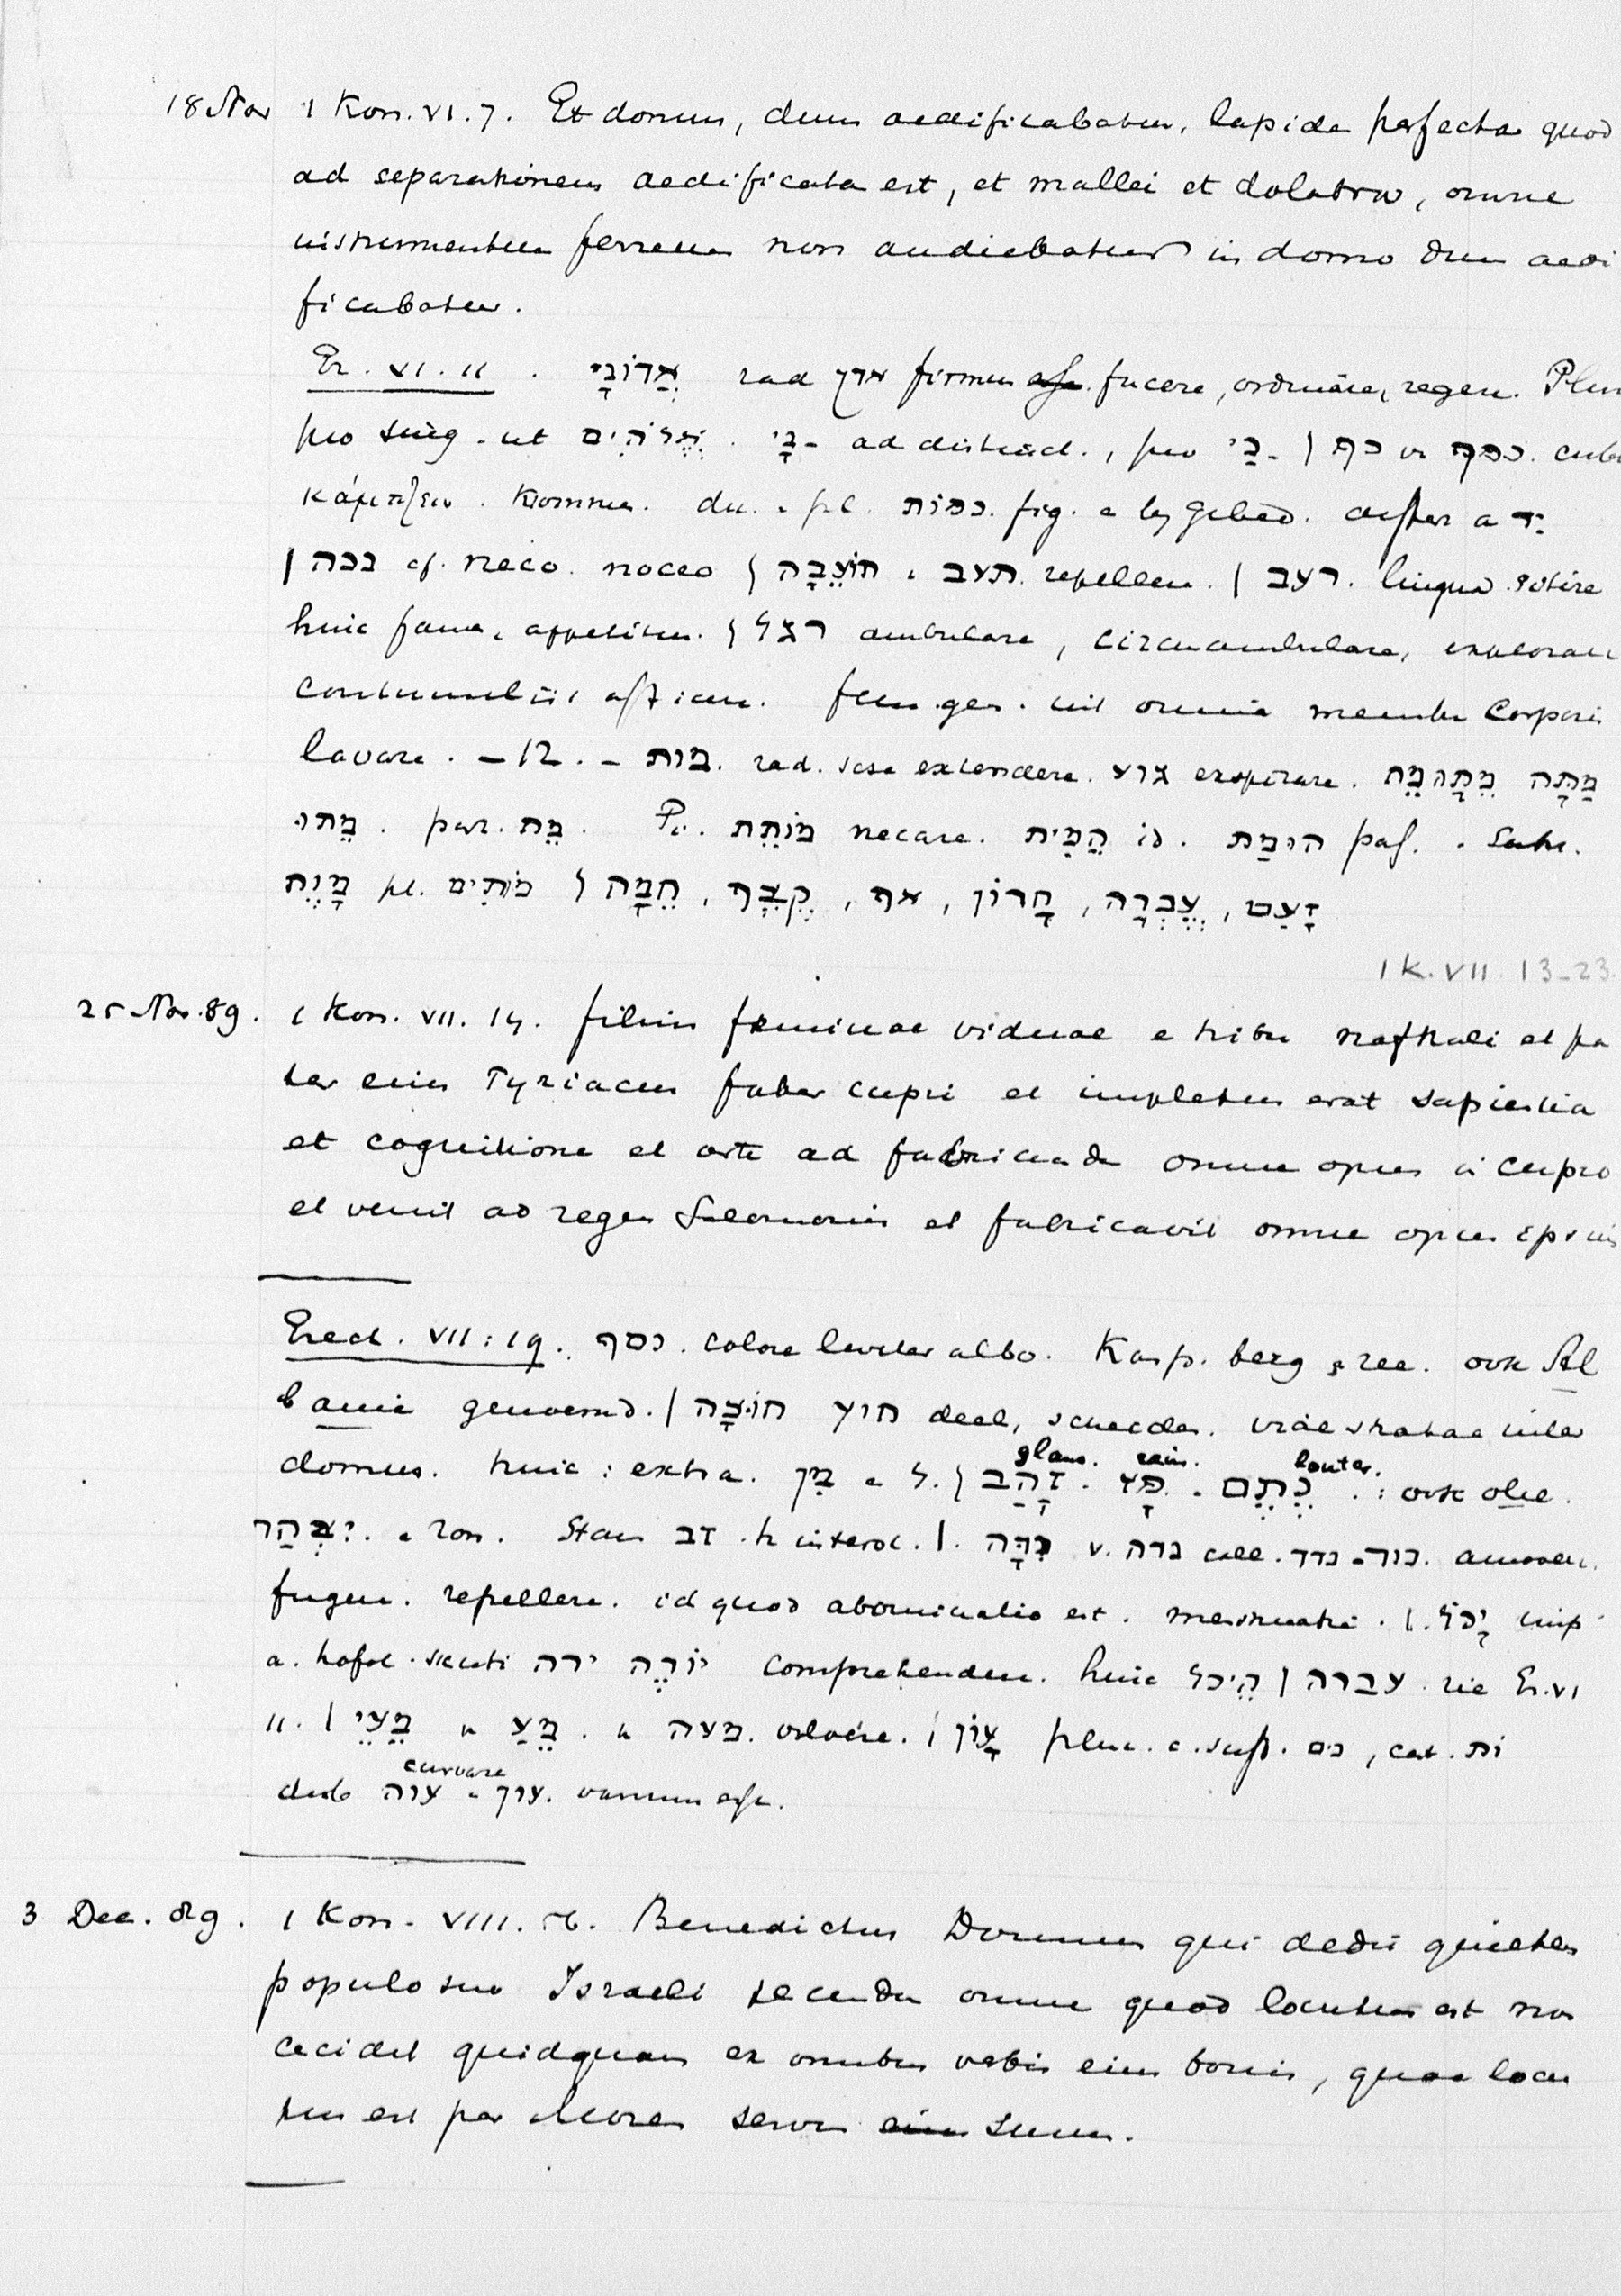 18 Nov 1 Kon. VI. 7. Et domus, dum aedificabatur, lapide perfecta quod
ad separationem aedificata est, et mallei et dolabra, omne
instrumentum ferreum non audiebatur in domo dum aedi
ficabatur.
Ez. VI. 11. אֲדוֹנָי rad אדן firmum facere, ordinare, regere. Plur
pro sing. ut אֱלֹהִים. נָי - ad distinct., pro נַי - | כף v כפף.
κάμπτειν. krommen. du. pl. כפות. fig. יד
| נכה cf. neco. noceo | תוֹעֵבָה תעב. repellere. | רעב. lingua
huic fame, appetitus. | רגל ambulare, circumambulare,
lavare. - 12. - מות. rad. sese extendere. גוע exspirare. מֵת מַתָּה
מֵתוּ. par. מֵת. Po. מוֹתֵת necare. הֵמִית id. הומַת pass. Subs.
מָוֶת pl. מוֹתִים | חֵמָה, קֶצֶף, אף, חָרוֹן, עֶבְרָה, זָעַם
1 K. VII. 13-23.
25 Nov. 89. 1 Kon. VII. 14. filius feminae viduae e tribu Nafthali et pa
ter eius Tyriacus faber cupri et impletus erat sapientia
et cognitione et arte ad fabricandum omne opus in cupro
et venit ad regem Salomonem et fabricavit omne opus eius
Ezech. VII: 19. כסף. colore leviter albo. Kasp. berg zee. ook Al
banie genoemd. | חוּצָה חוץ deel, scheiden. viae stratae inter
domus. huic: extra. מִן ל. | זָהַב. פָּז. כֶּתֶם.: ook olie.
glans. rein. louter.
יִצְהַר. Stam זב. h interoc. | נִדָּה v. נדה coll. נדד - נוד. amovere.
fugere. repellere. id quod abominatio est. menstruatio. | יָכֹל. imp
a. hofal. sicuti יוֹרֶה ירה comprehendere. huic הֵיכל | עברה. zie Ez. VI
11. | מֵעֵי מֵעַ. מעה. | עָוֹן plur. c. suff. נים, cet. ות
curvare
dub עוה - עון. vanum esse.
3 Dec. 89. 1 Kon. VIII. 56. Benedictus Dominus qui dedit quietem
populo suo Israeli secundum omne quod locutus est non
cecidit quidquam ex omnibus verbis eius bonis, quae locu
tus est per Mosen servum suum.